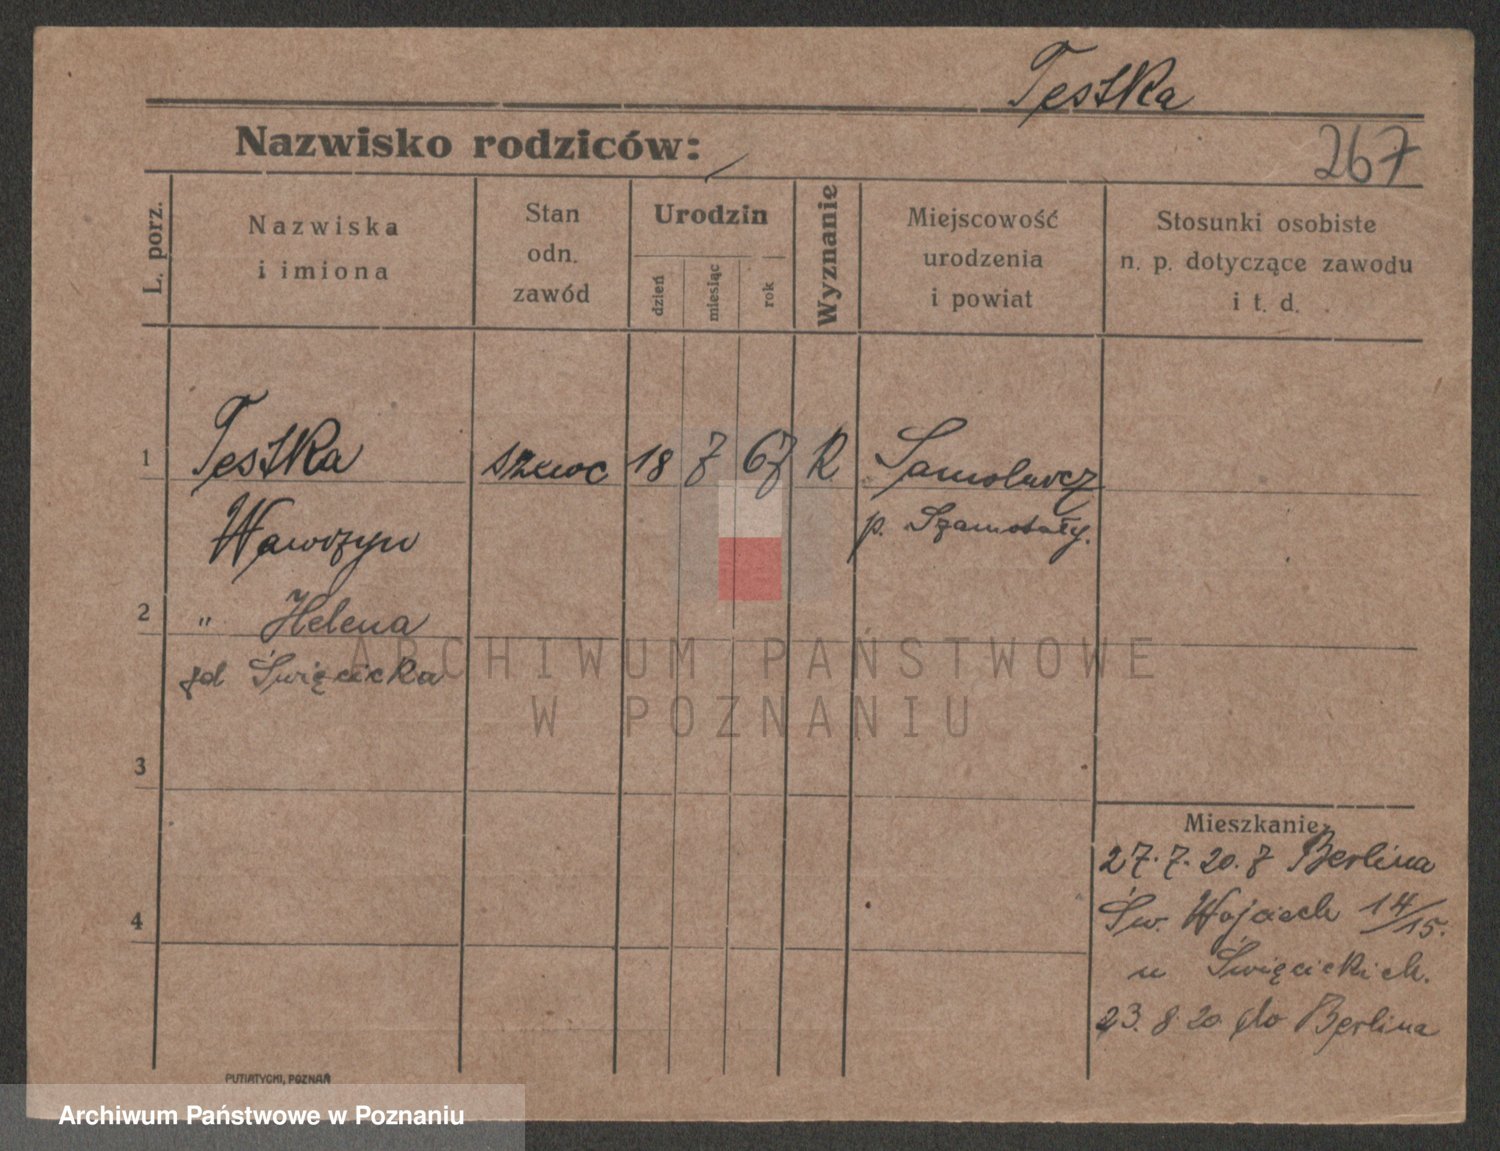 Teska
Nazwisko rodziców:
267
L. porz.
Nazwiska
i imiona
Stan
odn.
zawód
Urodzin
dzień
miesiąc
rok
Wyznanie
Miejscowość
urodzenia
i powiat
Stosunki osobiste
n. p. dotyczące zawodu
i t. d.
1
Teska
szewc
18
7
67
R
Wawrzyn
p. Szamotuły.
2
" Helena
Święcicka
3
Mieszkanie:
27. 7. 20. z Berlina
4
Św. Wojciech 14/15.
u Święcickich.
23. 8. 20 do Berlina
PUTIATYCKI, POZNAŃ
ARCHIWUM PAŃSTWOWE
W POZNANIU
Archiwum Państwowe w Poznaniu